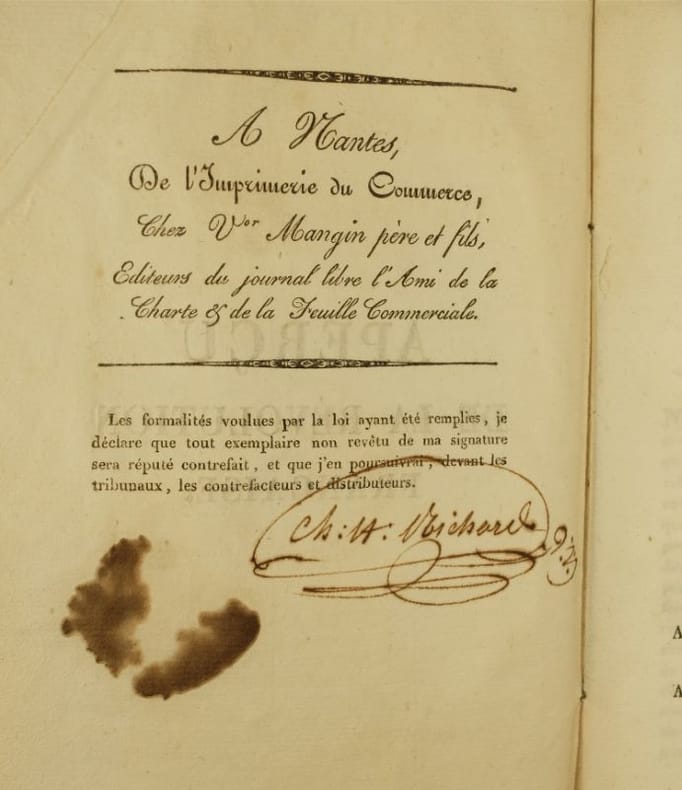 A Nantes,
De l'Imprimerie du Commerce,
Chez Vor Mangin père et fils,
Editeurs du journal libre l'Ami de la
Charte & de la Feuille Commerciale.
APERÇU
Les formalités voulues par la loi ayant été remplies, je
déclare que tout exemplaire non revêtu de ma signature
sera réputé contrefait, et que j'en poursuivrai, devant les
tribunaux, les contrefacteurs et distributeurs.
Ch: H: Richard